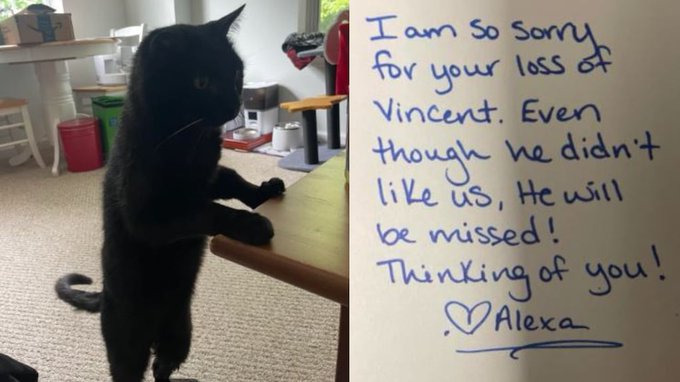 I am so sorry
for your loss of
Vincent. Even
though he didn't
like us, He will
be missed!
Thinking of you!
♡ Alexa